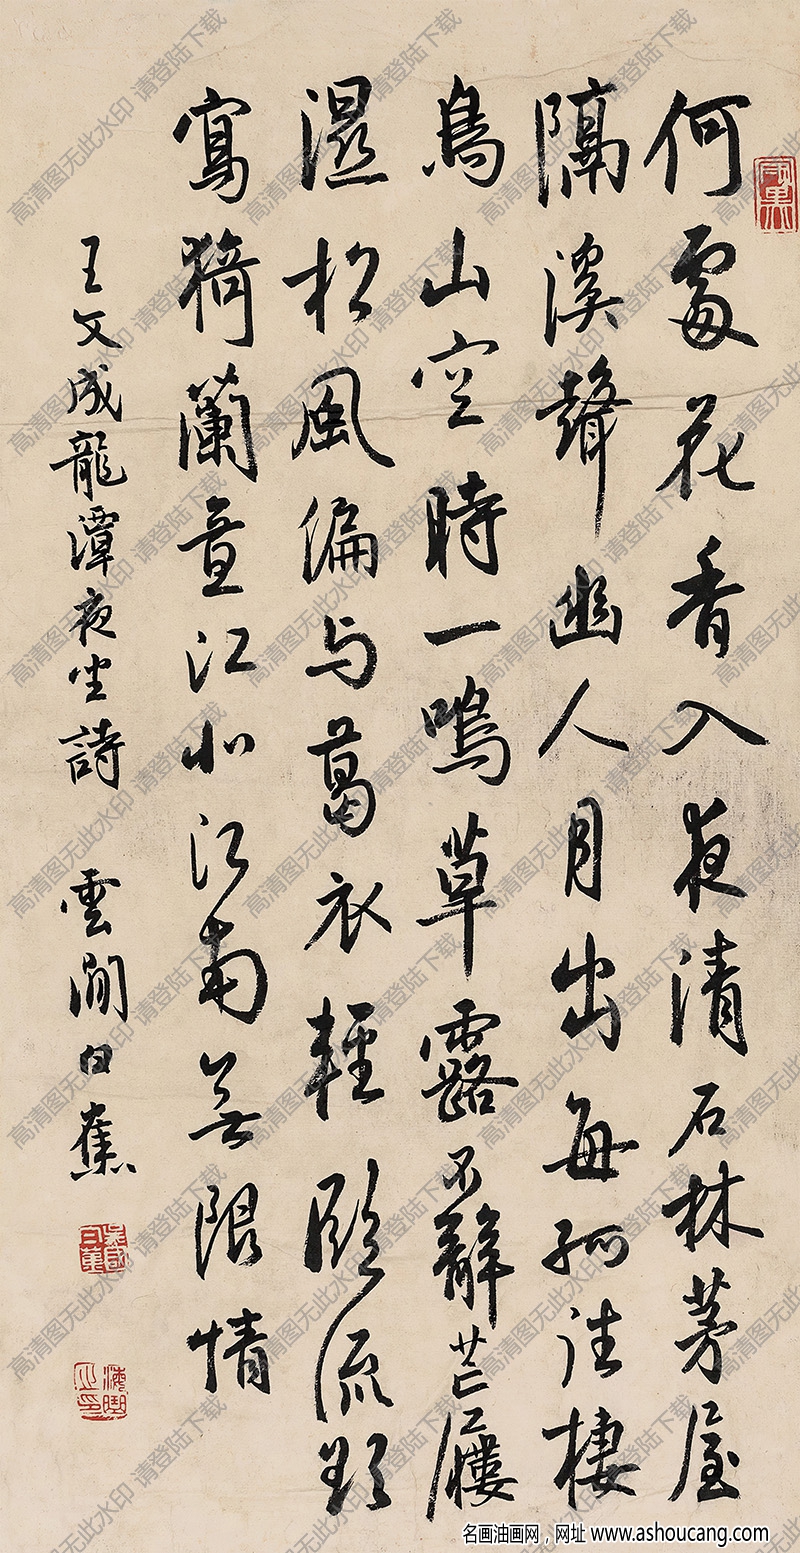 何處花香入夜清石林茅屋
隔溪聲幽人月出每孤往棲
鳥山空時一鳴草露不辭芒屨
濕松風偏与葛衣輕臨流欲
寫猗蘭意江北江南無限情
王文成龍潭夜坐詩 雲間白蕉
高清图无此水印 请登陆下载
名画油画网，网址 www.ashoucang.com